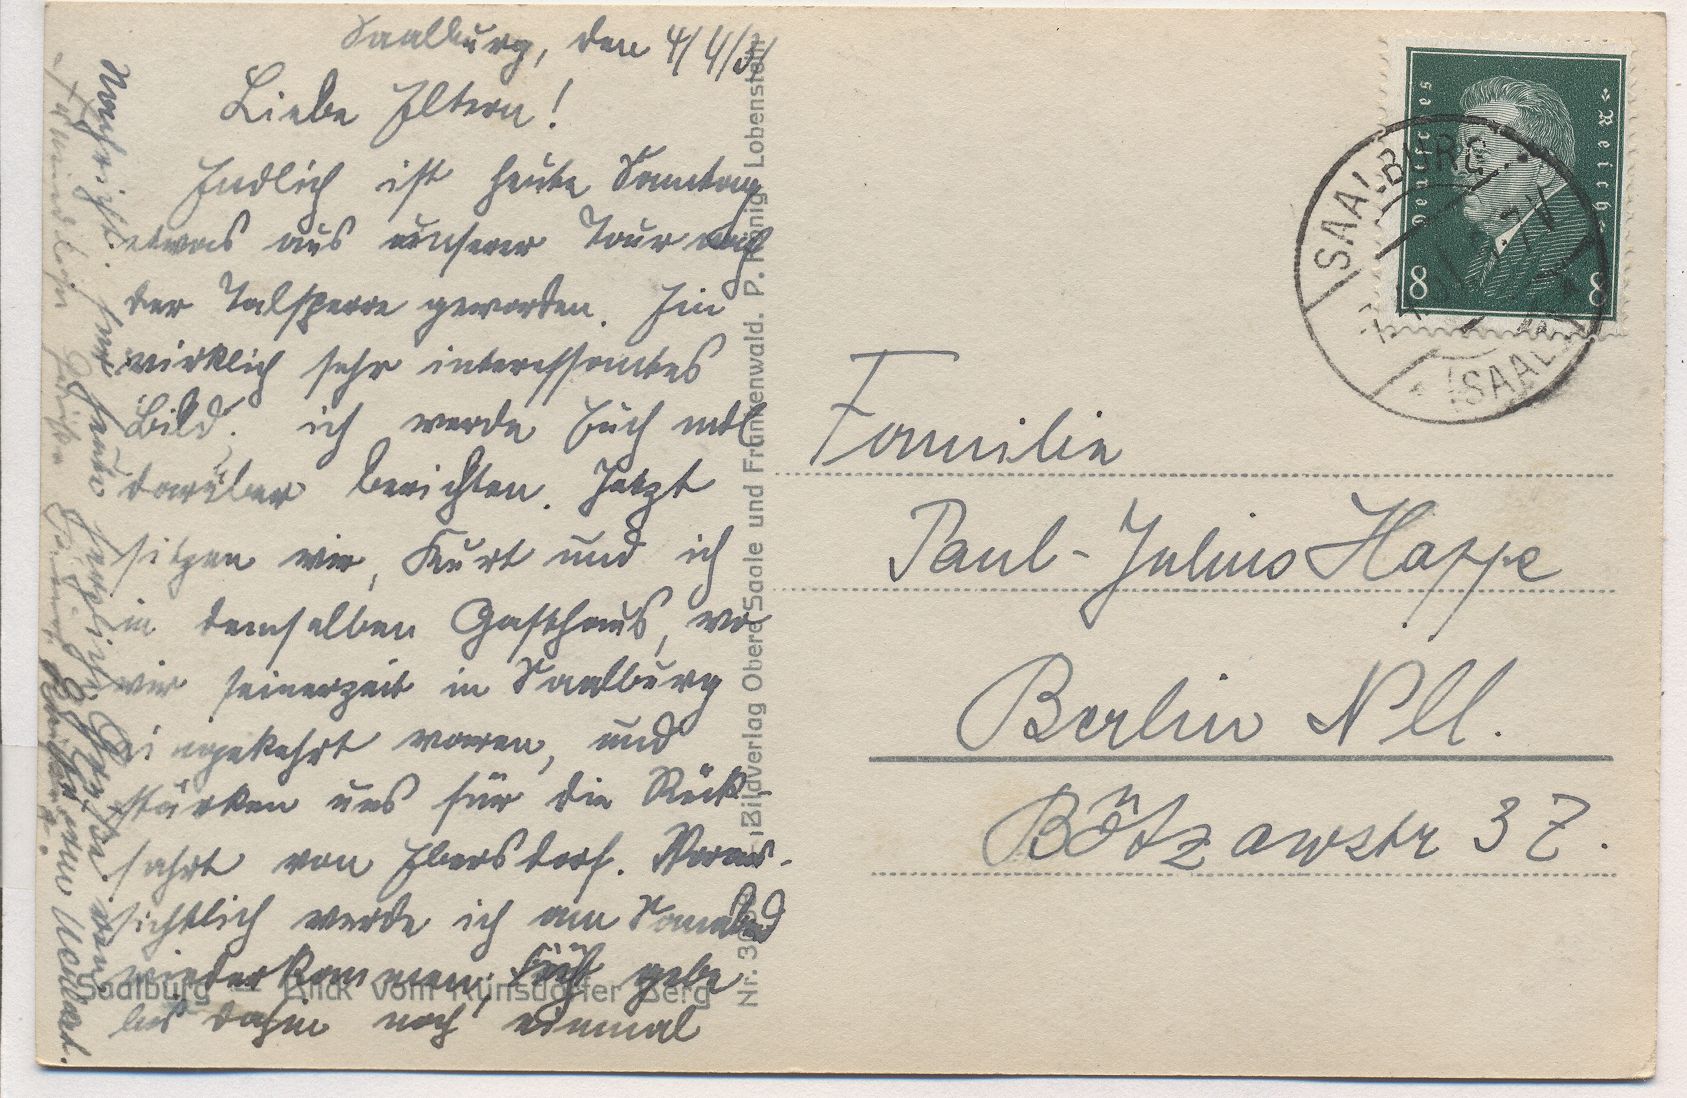 Saalburg, den 4/4/31
Liebe Eltern!
Endlich ist heute Sonntag
etwas aus unserer Tour nach
der Talsperre geworden. Ein
wirklich sehr interessantes
Bild. ich werde Euch mdl
darüber berichten. Jetzt
sitzen wir, Kurt und ich
in demselben Gasthaus, wo
wir seinerzeit in Saalburg
eingekehrt waren, und
stärken uns für die Rück-
fahrt von Ebersdorf. Voraus-
sichtlich werde ich am Sonnabend
wiederkommen, gebe
bis dahin noch einmal
Nachricht. Für heute herzliche Grüße von
Eurem
Freundliche Grüße
Saalburg – Blick vom Kulmsdorfer Berg
Bildverlag Obere Saale und Frankenwald. P. König Lobenstein
Familie
Paul-Julius Happe
Berlin N
Bötzowstr 37.
Deutsches Reich
8 8
SAALBURG
(SAALE)